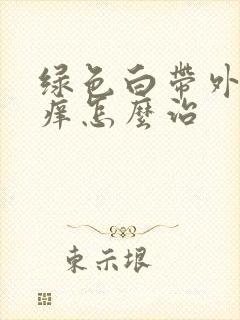 绿色白帶外
痒怎麼治
東示垠